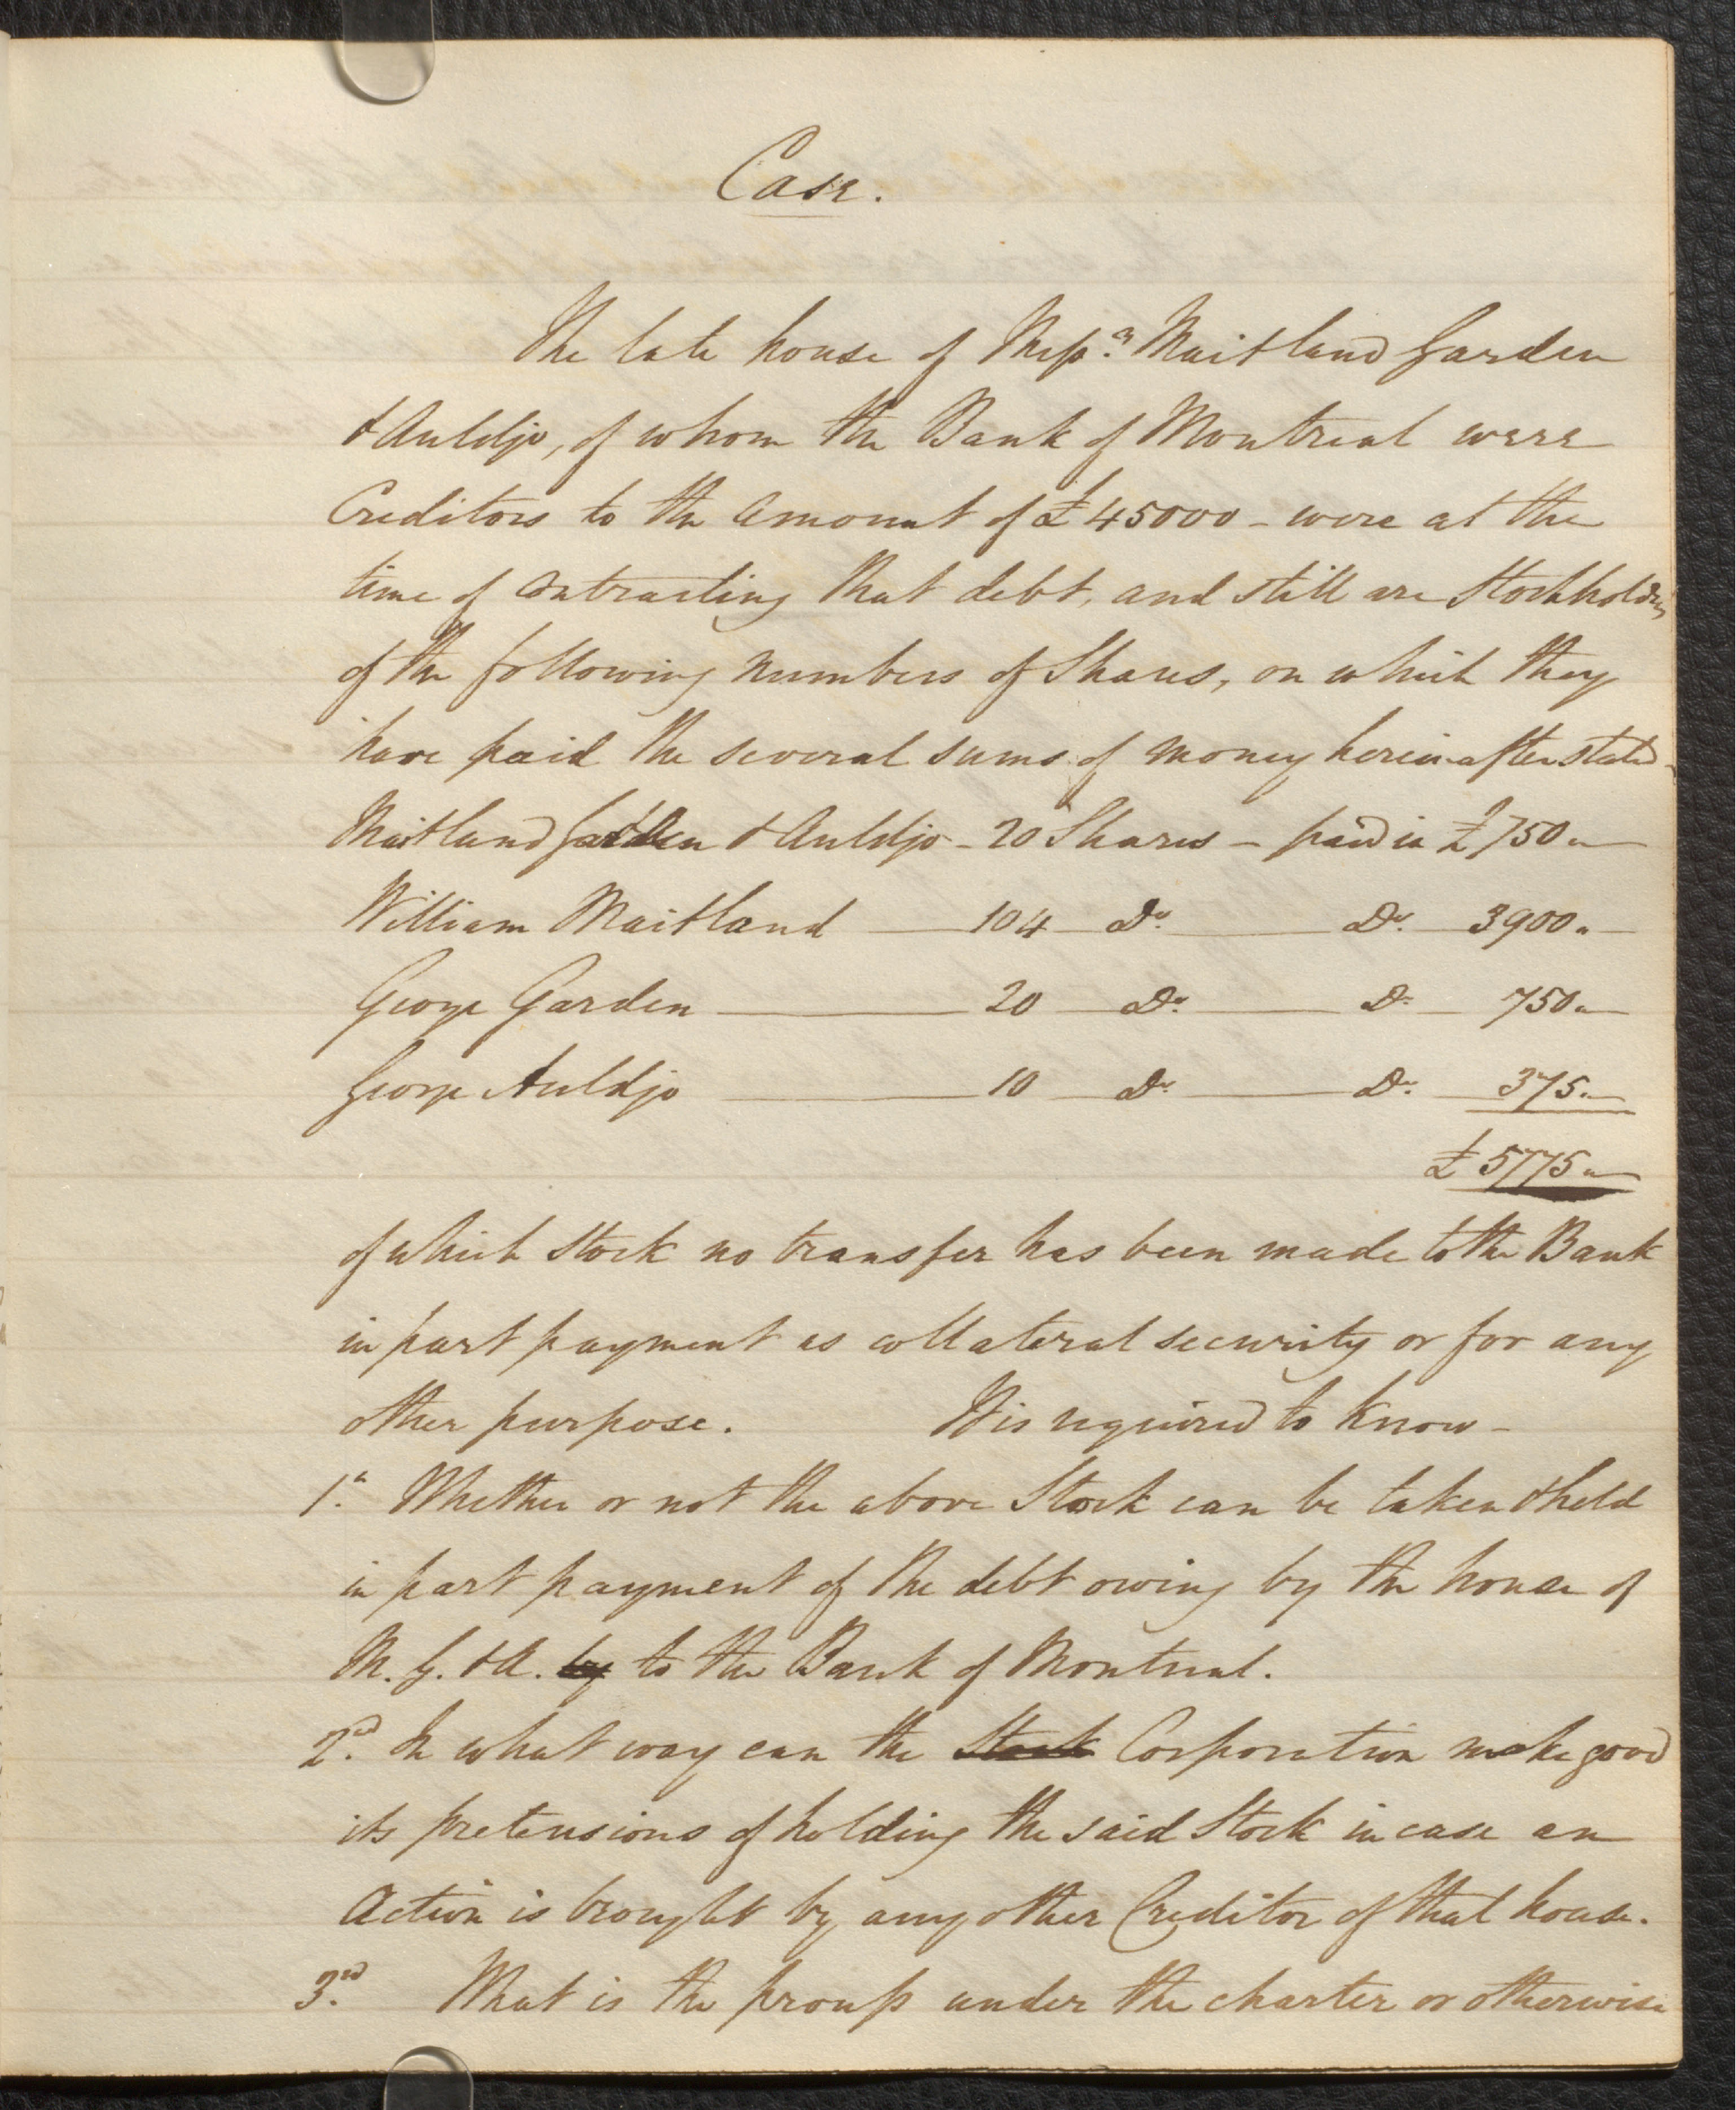 Case.
The late house of Mess.rs Maitland Garden
& Auldjo, of whom the Bank of Montreal were
Creditors to the amount of £45000 - were at the
time of contracting that debt, and still are Stockholders
of the following numbers of Shares, on which they
have paid the several sums of money hereinafter stated -
Maitland Garden & Auldjo - 20 Shares - paid in £750 "
William Maitland 104 Do. Do. 3900 "
George Garden 20 Do. Do. 750 "
George Auldjo 10 Do. Do. 375 "
£5775 "
of which Stock no transfer has been made to the Bank
in part payment as collateral security or for any
other purpose. It is required to know -
1st. Whether or not the above Stock can be taken & held
in part payment of the debt owing by the house of
M. G. & A. by to the Bank of Montreal.
2nd. In what way can the Stock Corporation make good
its pretensions of holding the said Stock in case an
Action is brought by any other Creditor of that house.
3rd. What is the process under the charter or otherwise